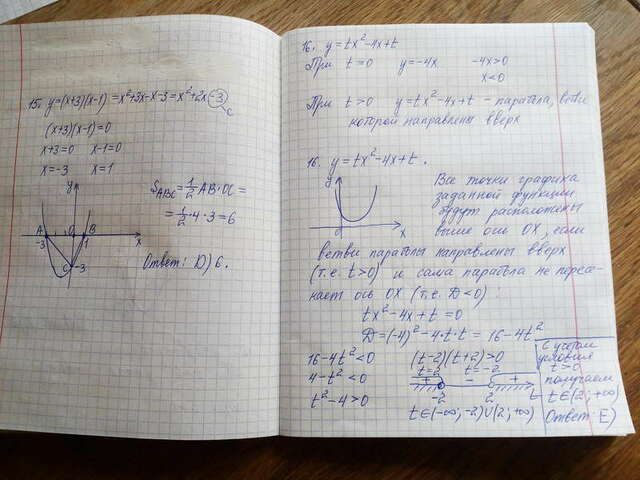 15. y=(x+3)(x-1)=x²+3x-x-3=x²+2x-3
c
(x+3)(x-1)=0
x+3=0 x-1=0
x=-3 x=1
y
S_ABC = 1/2 AB·OC =
= 1/2 · 4 · 3 = 6
A O B x
-3 1
C -3
Ответ: D) 6.
16. y=tx²-4x+t
При t=0 y=-4x -4x>0
x<0
При t>0 y=tx²-4x+t - парабола, ветви
которой направлены вверх
16. y=tx²-4x+t.
y
0 x
Все точки графика
заданной функции
будут расположены
выше оси OX, если
ветви параболы направлены вверх
(т.е. t>0) и сама парабола не пересе-
кает ось OX (т.е. D<0):
tx²-4x+t=0
D=(-4)²-4·t·t=16-4t²
16-4t²<0 (t-2)(t+2)>0
4-t²<0 t=2 t=-2
t²-4>0 + - +
-2 2 t
t∈(-∞;-2)∪(2;+∞)
С учетом
условия
t>0
получаем
t∈(2;+∞)
Ответ: E)